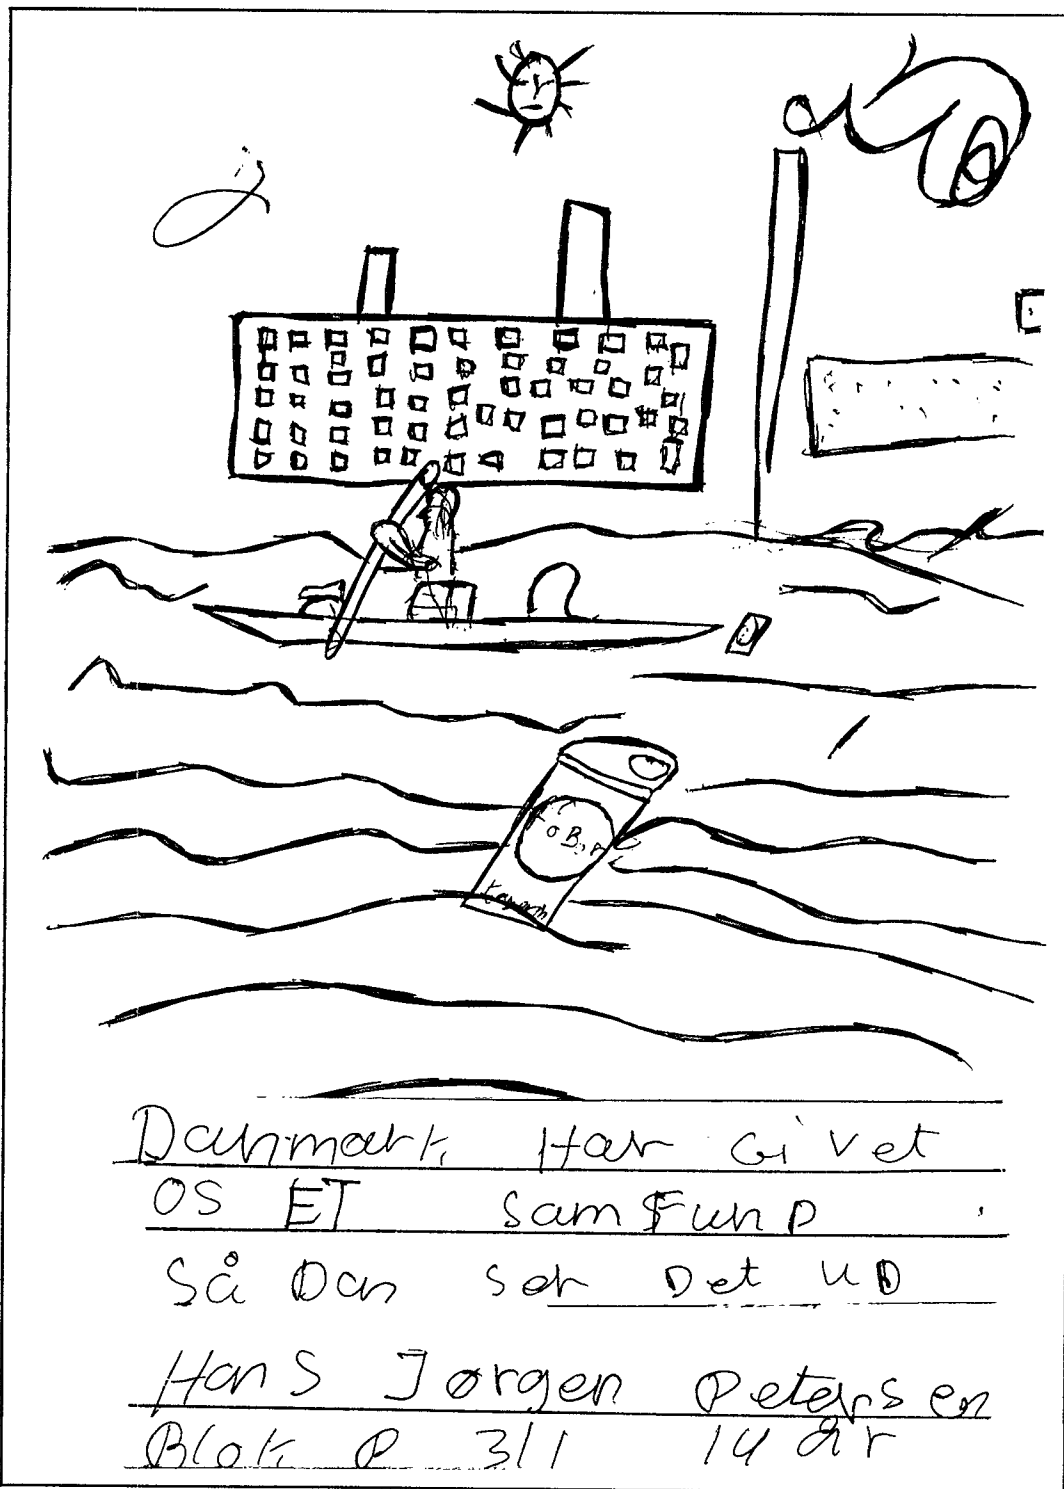 Danmark Har Givet
OS ET SamFunD
Så Dan ser Det UD
Hans Jørgen Petersen
Blok P 311 14 år